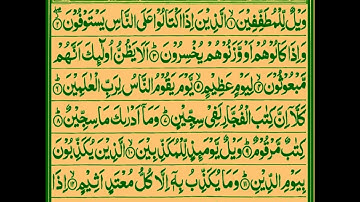 وَيْلٌ لِّلْمُطَفِّفِيْنَ ۙ‏﴿۱﴾ الَّذِيْنَ اِذَا اكْتَالُوْا عَلَى النَّاسِ يَسْتَوْفُوْنَ ۖ‏﴿۲﴾
وَاِذَا كَالُوْهُمْ اَوْ وَّزَنُوْهُمْ يُخْسِرُوْنَ ؕ‏﴿۳﴾ اَلَا يَظُنُّ اُولٰٓئِكَ اَنَّهُمْ
مَّبْعُوْثُوْنَ ۙ‏﴿۴﴾ لِيَوْمٍ عَظِيْمٍ ۙ‏﴿۵﴾ يَّوْمَ يَقُوْمُ النَّاسُ لِرَبِّ الْعٰلَمِيْنَ ؕ‏﴿۶﴾
كَلَّاۤ اِنَّ كِتٰبَ الْفُجَّارِ لَفِيْ سِجِّيْنٍ ؕ‏﴿۷﴾ وَمَاۤ اَدْرٰىكَ مَا سِجِّيْنٌ ؕ‏﴿۸﴾
كِتٰبٌ مَّرْقُوْمٌ ؕ‏﴿۹﴾ وَيْلٌ يَّوْمَئِذٍ لِّلْمُكَذِّبِيْنَ ۙ‏﴿۱۰﴾ الَّذِيْنَ يُكَذِّبُوْنَ
بِيَوْمِ الدِّيْنِ ؕ‏﴿۱۱﴾ وَمَا يُكَذِّبُ بِهٖۤ اِلَّا كُلُّ مُعْتَدٍ اَثِيْمٍ ۙ‏﴿۱۲﴾ اِذَا